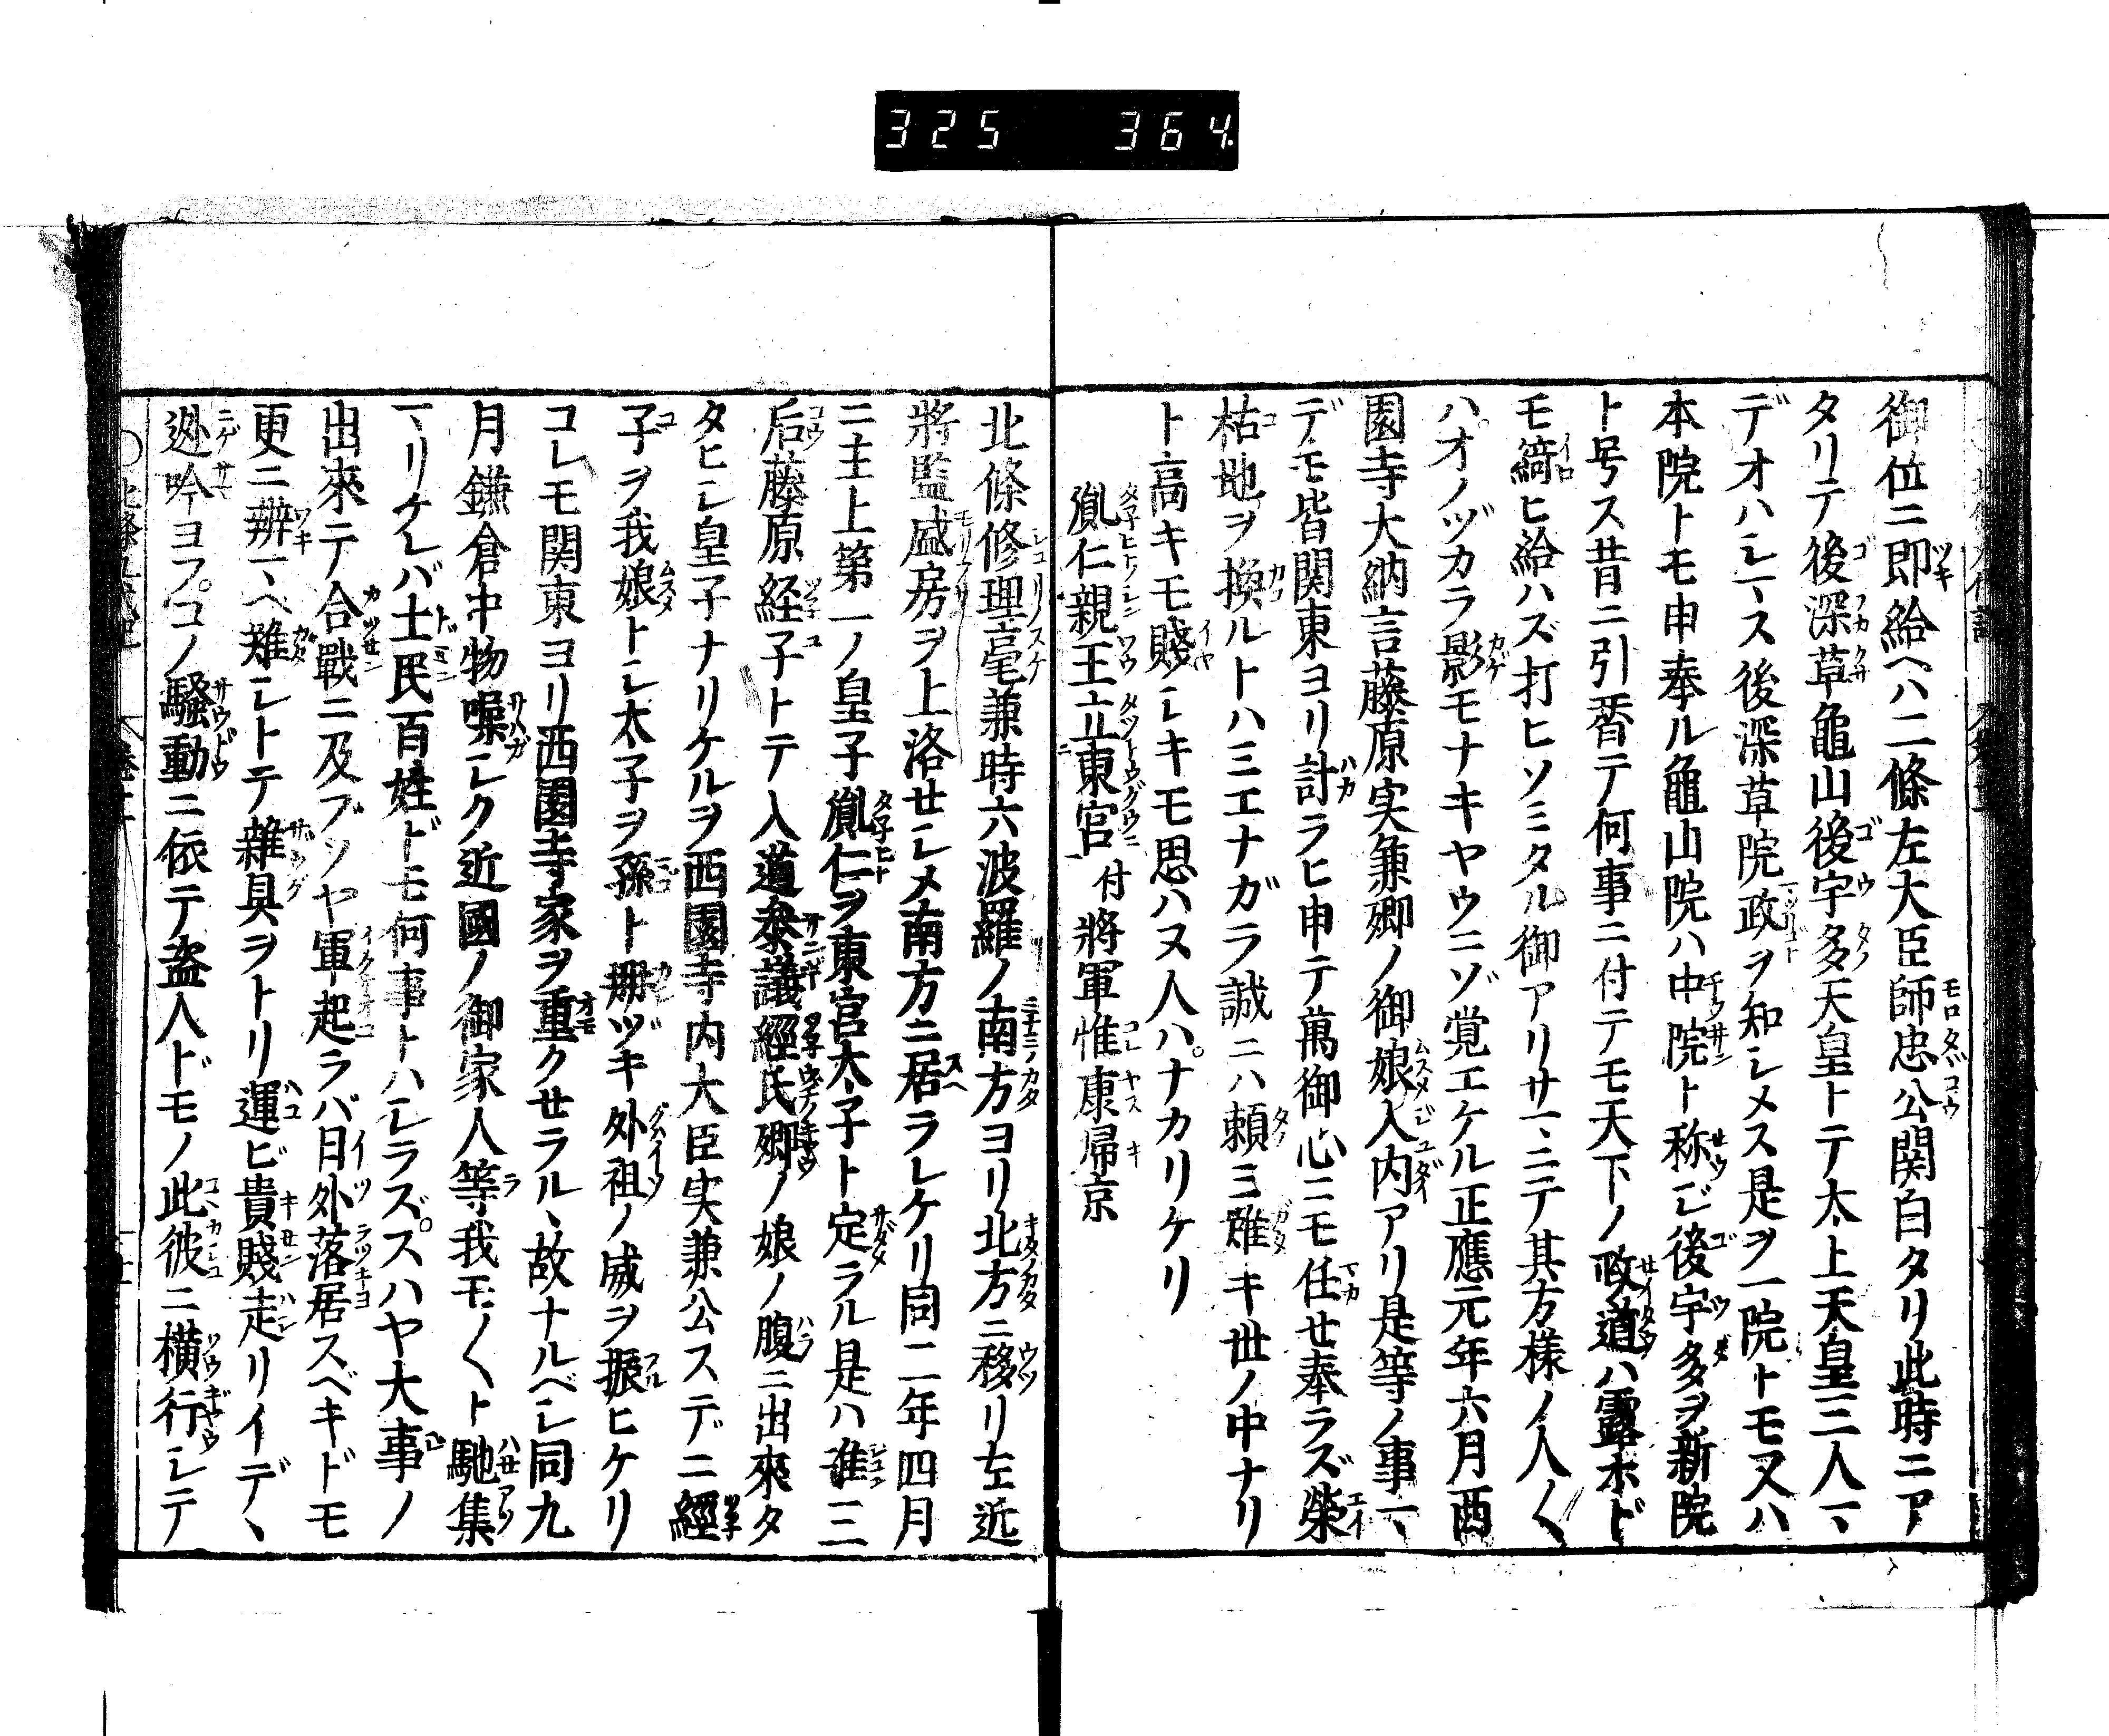 325 364
御位ニ即給ヘハ二條左大臣師忠公関白タリ此時ニア
タリテ後深草龜山後宇多天皇トテ太上天皇三人マヽ
デオハシマス後深草院政ヲ知シメス是ヲ一院トモ又ハ
本院トモ申奉ル龜山院ハ中院ト称シ後宇多ヲ新院
ト号ス昔ニ引替テ何事ニ付テモ天下ノ政道ハ露ホド
モ綺ヒ給ハズ打ヒソミタル御アリサマニテ其方様ノ人〱
ハオノヅカラ影モナキヤウニゾ覚エケル正應元年六月西
園寺大納言藤原実兼卿ノ御娘入内アリ是等ノ事マ
デモ皆関東ヨリ計ラヒ申テ萬御心ニモ任せ奉ラズ榮
枯地ヲ換ルトハミエナガラ誠ニハ頼ミ難キ世ノ中ナリ
ト高キモ賤シキモ思ハヌ人ハナカリケリ
胤仁親王立東宮 付將軍惟康帰京
北條修理亮兼時六波羅ノ南方ヨリ北方ニ移リ左近
將監盛房ヲ上洛せシメ南方ニ居ラレケリ同二年四月
ニ主上第一ノ皇子胤仁ヲ東宮太子ト定ラル是ハ准三
后藤原経子トテ入道参議經氏卿ノ娘ノ腹ニ出來タ
タヒシ皇子ナリケルヲ西園寺内大臣実兼公スデニ經
子ヲ我娘トシ太子ヲ孫ト冊ヅキ外祖ノ威ヲ振ヒケリ
コレモ関東ヨリ西園寺家ヲ重クせラルヽ故ナルベシ同九
月鎌倉中物噪シク近國ノ御家人等我モ〱ト馳集
マリケレバ士民百姓ドモ何事トハシラズスハヤ大事ノ
出來テ合戰ニ及ブソヤ軍起ラバ日外落居スベキドモ
更ニ辨マヘ難シトテ雜具ヲトリ運ビ貴賤走リイデヽ
迯吟ヨフコノ騒動ニ依テ盗人ドモノ此彼ニ横行シテ